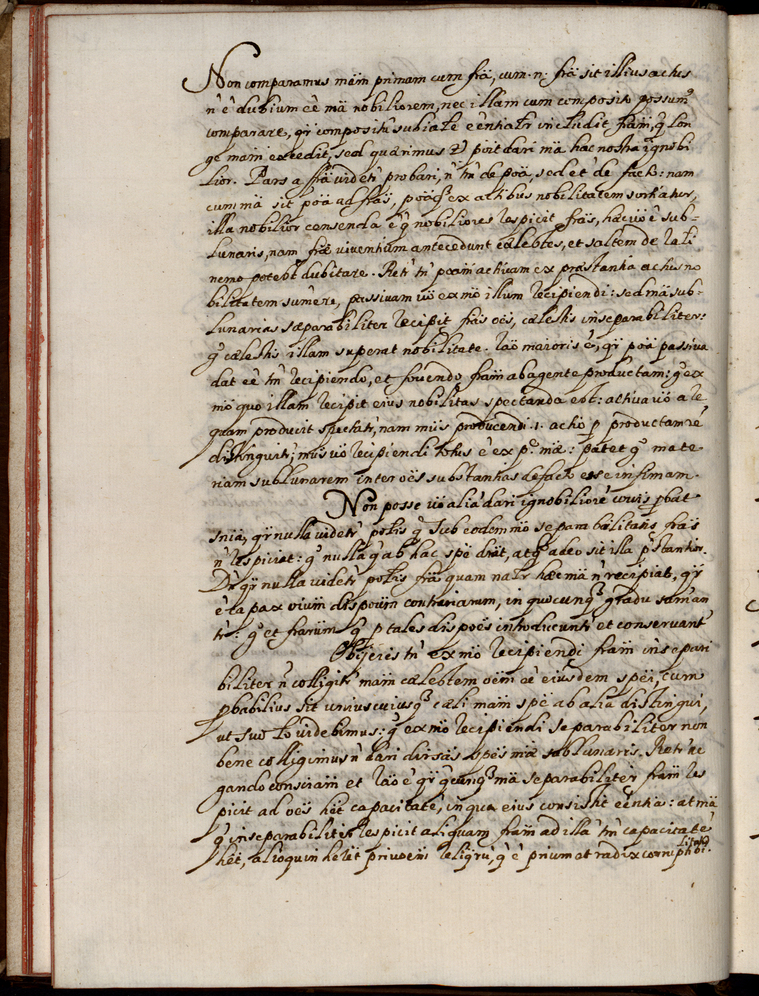 Non comparamus mãm primam cum frã, cum .n. frã sit illius actus
n ê dubium eê mã nobiliorem, nec illam cum composito possum9
comparare, qr composit9 subiãle eêntiatr includit frãm, q lon
gê mãm excedit, sed quærimus pöit dari mã hac nostra ignobi
lior. Pars a frã videtr probari, n tm de poä, sed et de facto: nam
cum mã sit poä ad frãs, poä ex actibus nobilitatem sortiatur,
illa nobilior censenda ê q nobiliores respicit frãs, hæc vö ê sub-
lunaris, nam fræ viventium antecedunt cælestes, et saltem de rãli
nemo potest dubitare. Retr tn poãm activam ex præstantia actus no
bilitatem sumere, passivam vö ex mö illum recipiendi: sed mã sub-
lunaris separabiliter recipit frãs oës, cælestis inseparabiliter:
g cælestis illam superat nobilitate. Raö maioris ê, qr poä passiva
dat eê tm recipiendo, et fovendo frãm ab agente productam: g ex
mö quo illam recipit eius nobilitas spectanda est: activa vö a re
quam producit spectatr, nam mus producendi .i. actio p productam re
distinguitr; mus vö recipiendi totus ê ex p mæ: patet g mate
riam sublunarem inter oës substantias de facto esse infimam.
Non posse vö alia dari ignobiliore probat
snia, qr nulla videtr polis q sub eodem mö separabilitatis frãs
n respiciat: g nulla q ab hac spê dräat, atq adeo sit illa præstantior.
Dr qr nulla videtr polis frã quam natr hæc mã n recipiat, qr
ê capax oium dispöum contrariarum, in quocunq gradu suman
tr: g et frarum q p tales dispöes introducuntr et conservantr
Obijcies tn ex mö recipiendi frãm insepari
biliter n colligitr mãm cælestem oem eê eiusdem spëi, cum
pbabilius sit uniuscuiusq cæli mãm spê ab alia distingui,
ut suo lo videbimus: g ex mö recipiendi separabiliter non
bene colligimus n dari diversas spës mæ sublunaris. Retr ne
gando consciam et raö ê qr quæcunq mã separabiliter frãm res
picit ad oës het capacitate, in qua eius consistit eêntia: at mã
q inseparabiliter respicit aliquam frãm ad illa tm capacitate
het, alioquin heret privoem reliqru, q ê prium et radix corruptibi-
litatis.